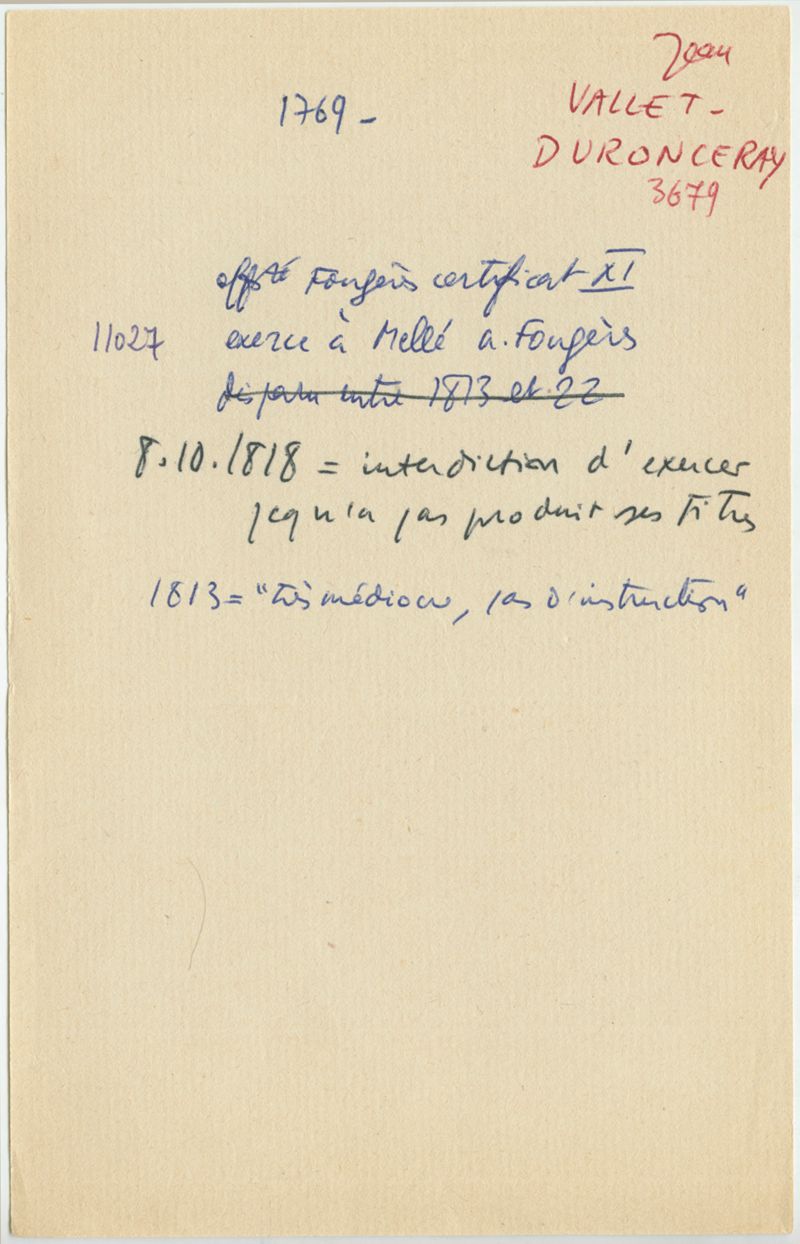 Jean
1769 - VALLET-
DURONCERAY
3679
offté Fougères certificat XI
11027 exerce à Mellé a. Fougères
disparu entre 1813 et 22
8.10.1818 = interdiction d'exercer
jcq n'a pas produit ses titres
1813 = "très médiocre, pas d'instruction"